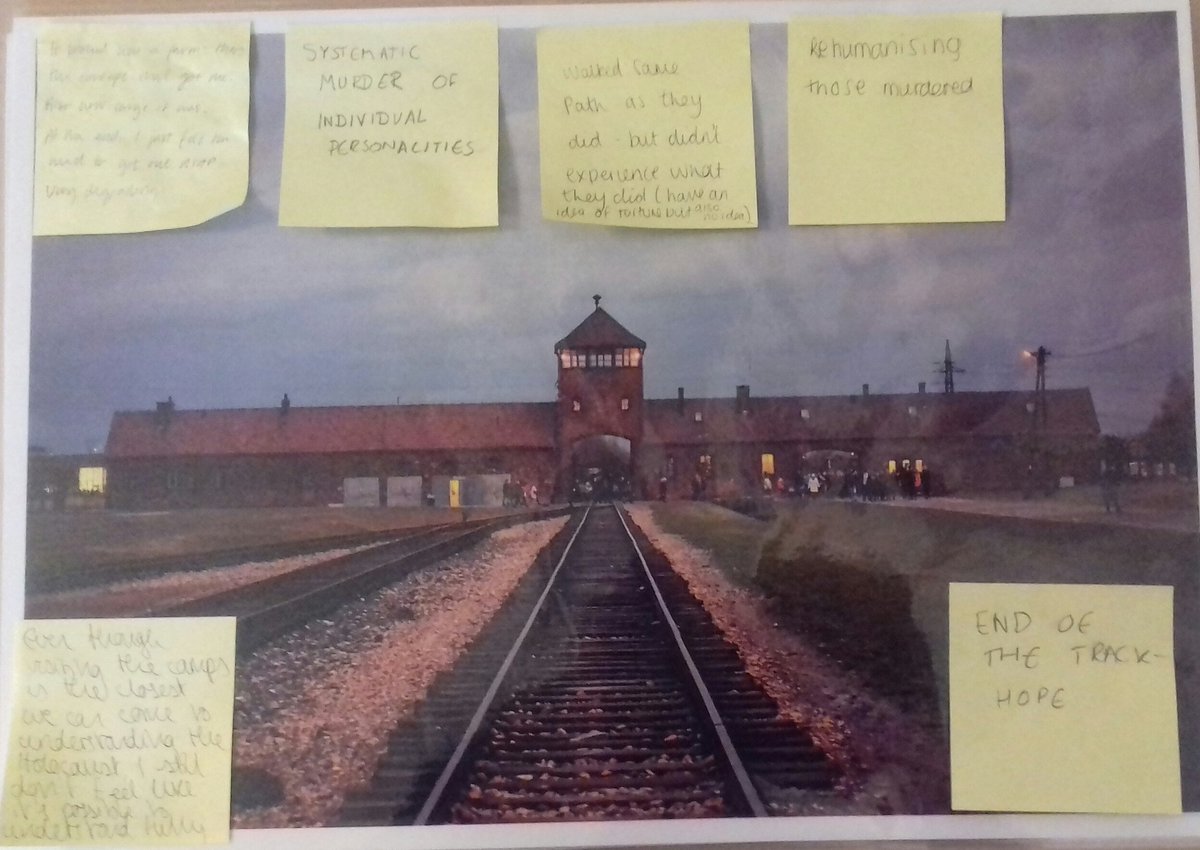 It looked like a farm. 
the
that got me.
How large it was.
At the end, I just felt the
need to get out ASAP
Very degrading
SYSTEMATIC
MURDER OF
INDIVIDUAL
PERSONALITIES
Walked Same
Path as they
did - but didn't
experience what
they did (have an
idea of torture but also no idea)
Rehumanising
those murdered
Even though
visiting the camps
is the closest
we can come to
understanding the
Holocaust I still
don't feel like
it's possible to
understand fully
END OF
THE TRACK-
HOPE